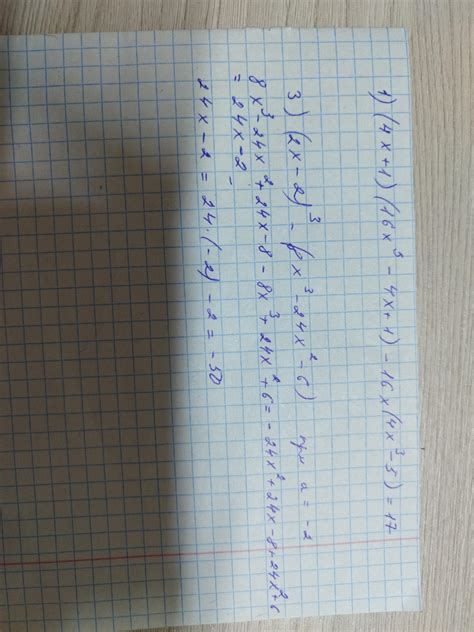 1) (4x+1)(16x³-4x+1)-16x(4x³-5)=17
3) (2x-2)³-(8x³-24x²-6) при a=-2
8x³-24x²+24x-8-8x³+24x²+6=-24x²+24x-8+24x²+6
=24x-2=
24x-2=24·(-2)-2=-50